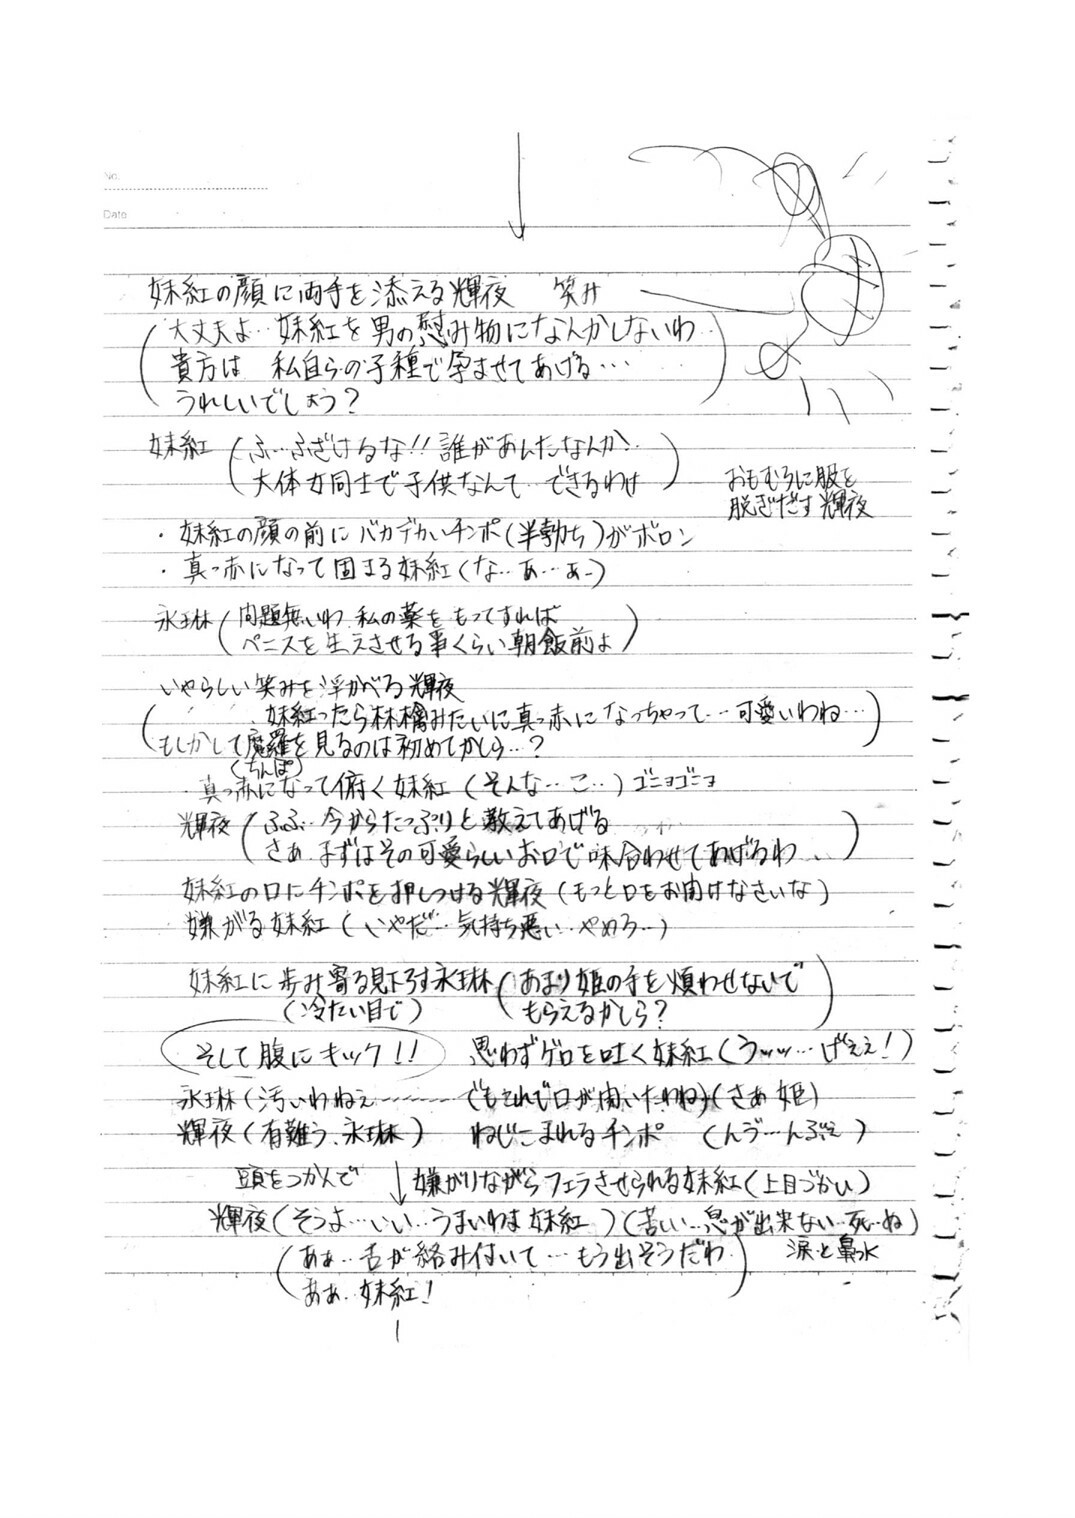 No.
Date
妹紅の顔に両手を添える輝夜 笑み
(大丈夫よ…妹紅を男の慰み物になんかしないわ…
貴方は 私自らの子種で孕ませてあげる…
うれしいでしょう?)
妹紅(ふ…ふざけるな!!誰があんたなんか…
大体女同士で子供なんて…できるわけ)
おもむろに服を
脱ぎだす輝夜
・妹紅の顔の前にバカデカいチンポ(半勃ち)がボロン
・真っ赤になって固まる妹紅(な…あ…あ-)
永琳(問題無いわ 私の薬をもってすれば
ペニスを生えさせる事くらい朝飯前よ)
いやらしい笑みを浮かべる輝夜
(妹紅ったら林檎みたいに真っ赤になっちゃって…可愛いわね…
もしかして魔羅を見るのは初めてかしら…?)
(ちんぽ)
・真っ赤になって俯く妹紅(そんな…こ…)ゴニョゴニョ
輝夜(ふふ…今からたっぷりと教えてあげる
さあ まずはその可愛らしいお口で味合わせてあげるわ…)
妹紅の口にチンポを押しつける輝夜(もっと口をお開けなさいな)
嫌がる妹紅(いやだ…気持ち悪い…やめろ…)
妹紅に歩み寄る見下ろす永琳(あまり姫の手を煩わせないで
(冷たい目で) もらえるかしら?)
そして腹にキック!! 思わずゲロを吐く妹紅(うッッ…げぇえ!)
永琳(汚いわねぇ……でもこれで口が開いたわね)(さあ姫)
輝夜(有難う、永琳) ねじこまれるチンポ (んヴ…んぶぇ)
頭をつかんで ↓ 嫌がりながらフェラさせられる妹紅(上目づかい)
輝夜(そうよ…いい…うまいわよ妹紅)(苦しい…息が出来ない…死…ぬ)
(あぁ…舌が絡み付いて…もう出そうだわ 涙と鼻水
あぁ…妹紅!)